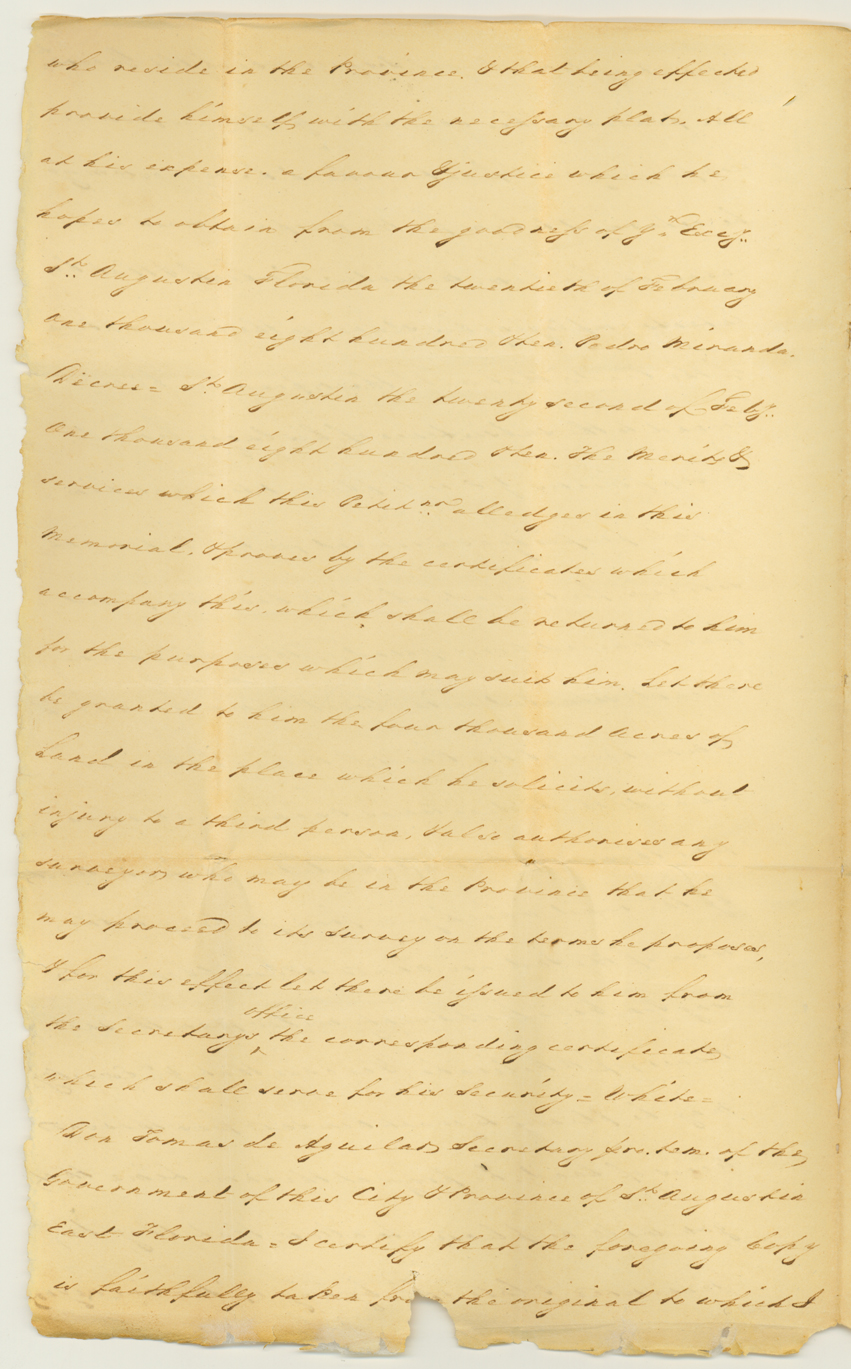 who reside in the Province. & that being effected
provide himself with the necessary plat. All
at his expense. a favour & justice which he
hopes to obtain from the goodness of Yr. Excy..
St.. Augustin Florida the twentieth of February
One thousand eight hundred & ten. Pedro Miranda.
Decree = St. Augustin the twenty second of Feby..
One thousand eight hundred & ten. The Merits &
services which this Petitnr.. alledges in this
Memorial. & proves by the certificates which
accompany this. which shall be returned to him
for the purposes which may suit him. Let there
be granted to him the four thousand Acres of
Land in the place which he solicits, without
injury to a third person, & also authorises any
surveyor who may be in the Province that he
may proceed to its survey on the terms he proposes,
& for this effect let there be issued to him from
the Secretarys office the corresponding certificate
which shall serve for his Security = White =
Don Tomas de Aguilar Secretary pro. tem. of the
Government of this City & Province of St. Augustin
East Florida = I certify that the foregoing Copy
is faithfully taken fro the original to which I